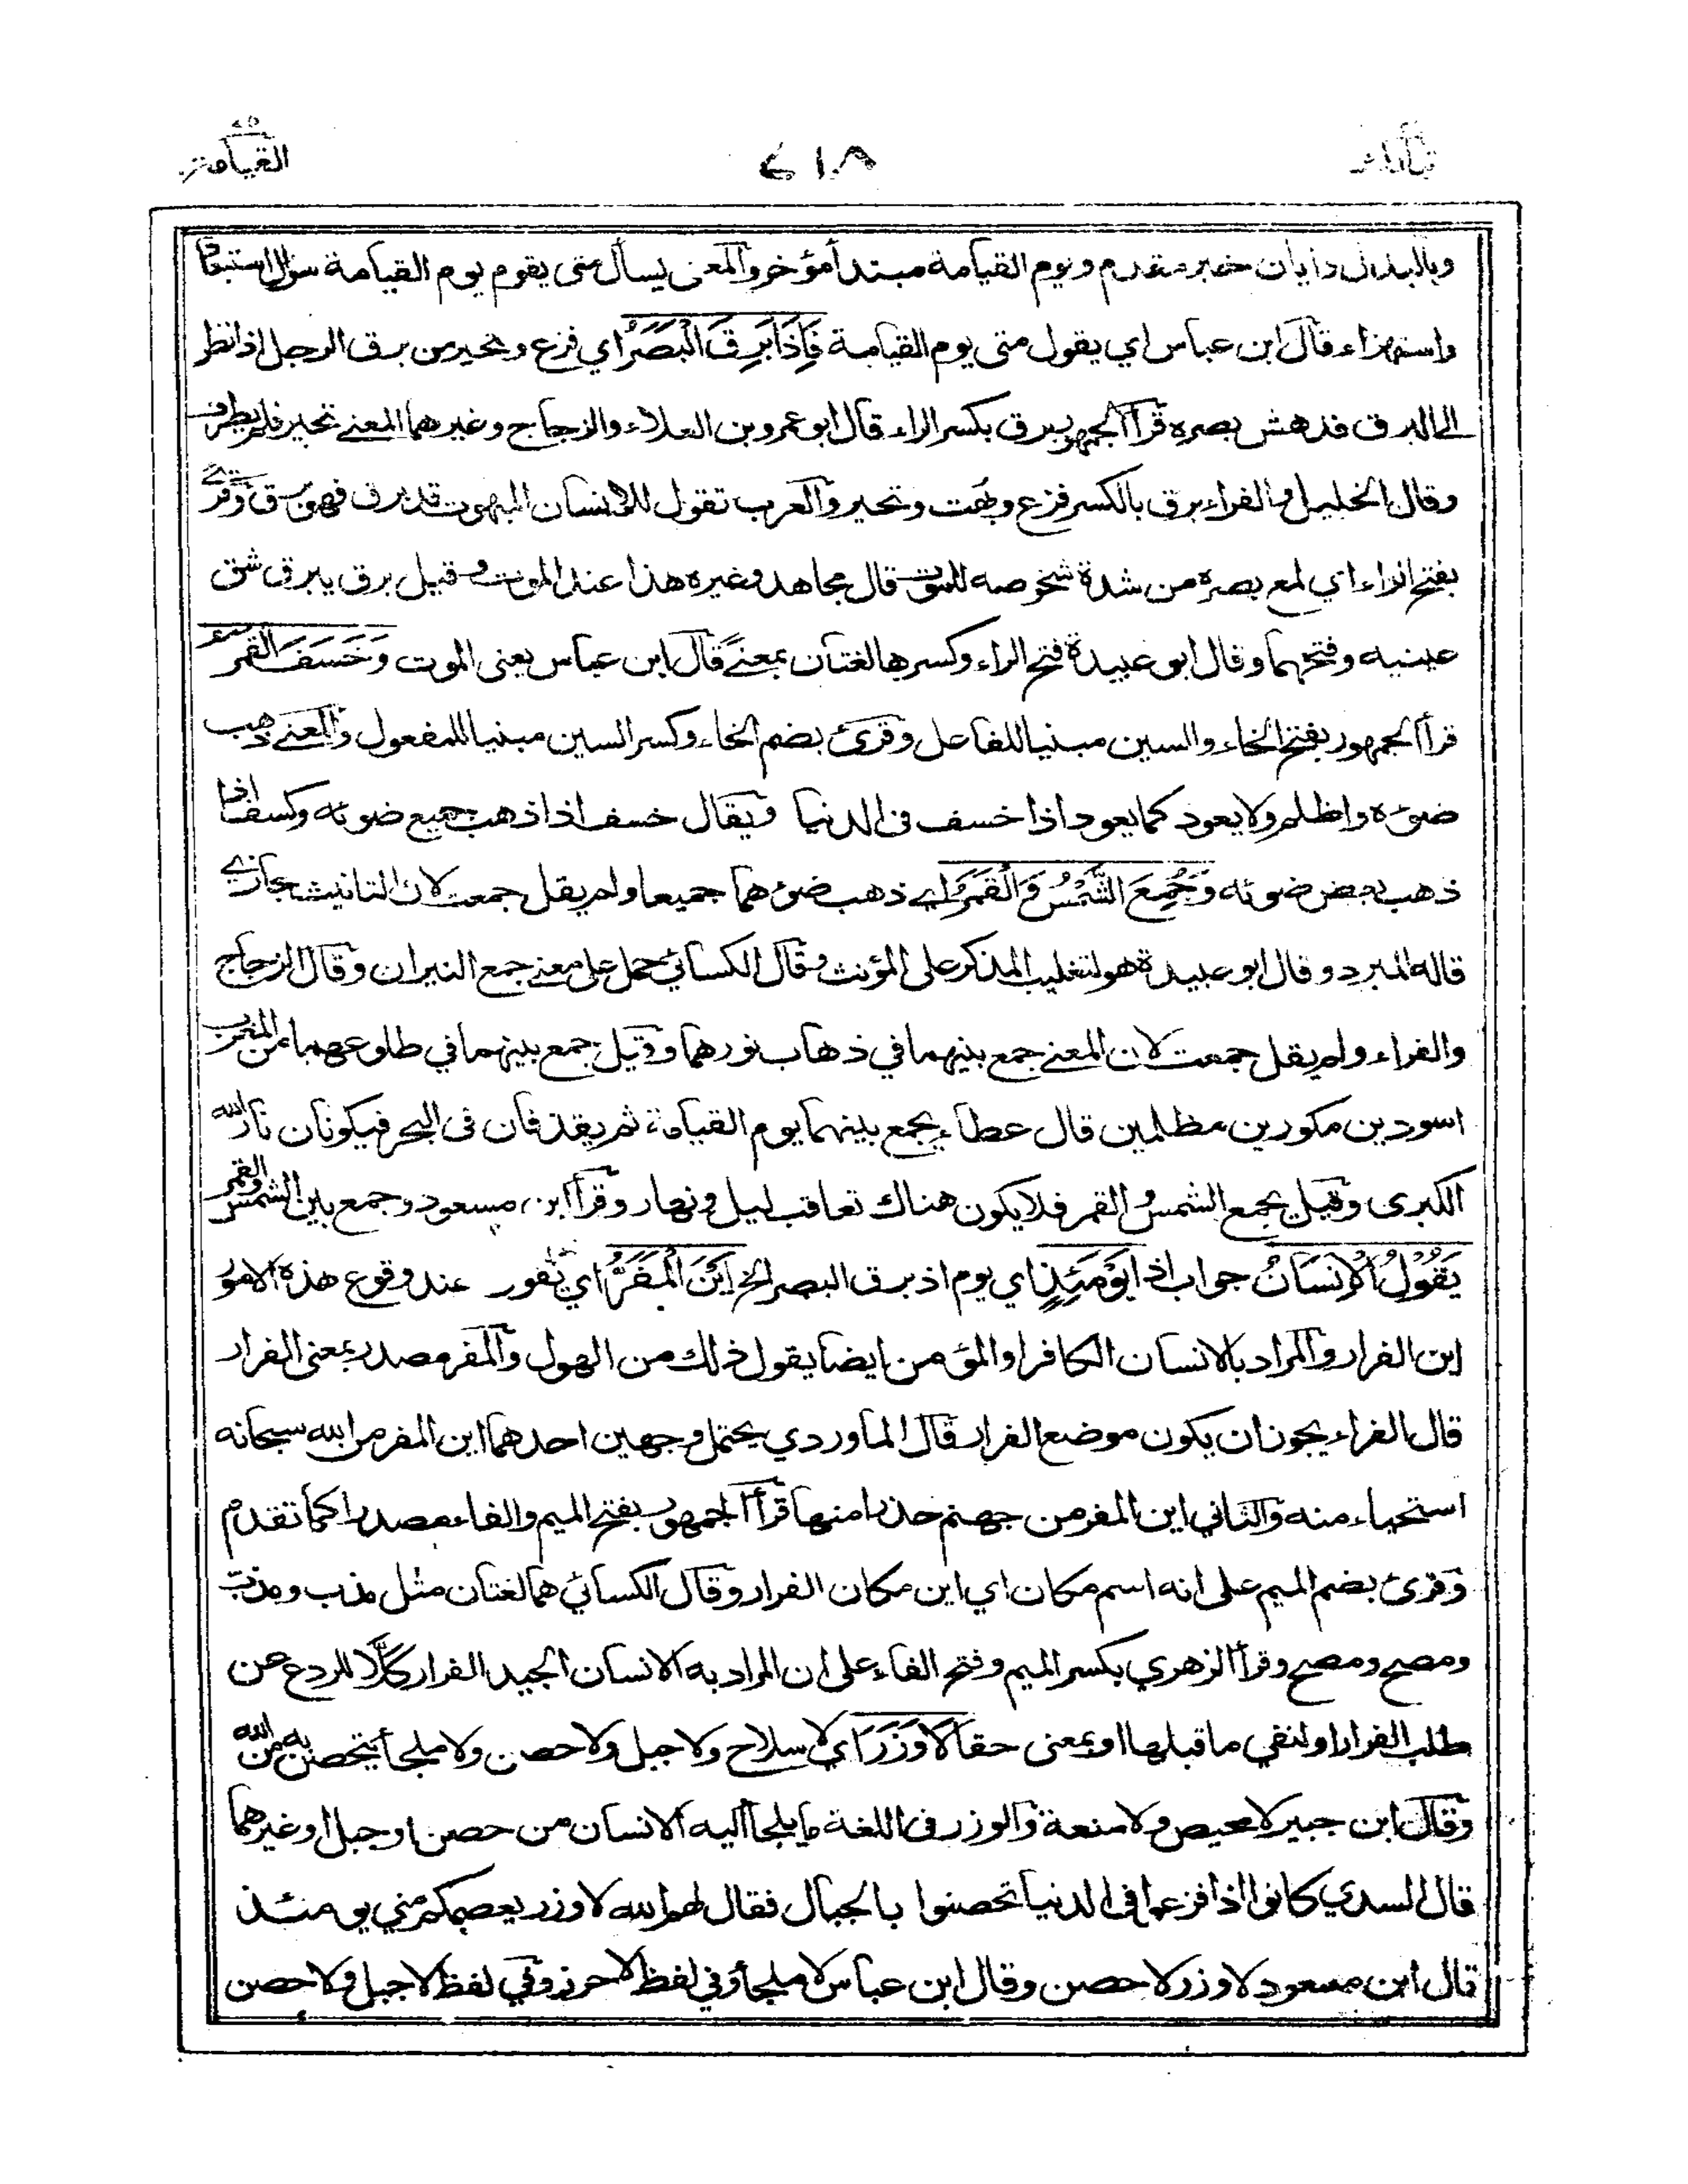 القيامة ٢١٨ تبارك
وبالبدل وايان خبر مقدم ويوم القيامة مبتدأ مؤخر والمعنى يسأل متى يقوم يوم القيامة سؤال استبعاد
واستهزاء قال ابن عباس اي يقول متى يوم القيامة فَاِذَا بَرِقَ الْبَصَرُ اي فزع وتحير من برق الرجل اذا نظر
الى البرق فدهش بصره قرأ الجمهور برق بكسر الراء قال ابو عمرو بن العلاء والزجاج وغيرهما المعنى تحير فلم يطرف
وقال الخليل والفراء برق بالكسر فزع وبهت وتحير والعرب تقول للانسان المبهوت قد برق فهو برق وقرئ
بفتح الراء اي لمع بصره من شدة شخوصه للموت قال مجاهد وغيره هذا عند الموت وقيل برق يبرق شق
عينيه وفتحهما وقال ابو عبيدة فتح الراء وكسرها لغتان بمعنى قال ابن عباس يعنى الموت وَخَسَفَ الْقَمَرُ
قرأ الجمهور بفتح الخاء والسين مبنيا للفاعل وقرئ بضم الخاء وكسر السين مبنيا للمفعول والمعنى ذهب
ضوءه واظلم ولا يعود كما يعود اذا خسف فى الدنيا ويقال خسف اذا ذهب جميع ضوئه وكسف اذا
ذهب بعض ضوئه وَجُمِعَ الشَّمْسُ وَالْقَمَرُ اي ذهب ضوءهما جميعا ولم يقل جمعت لان التانيث مجازي
قاله المبرد وقال ابو عبيدة هو لتغليب المذكر على المؤنث وقال الكسائي حمل على معنى جمع النيران وقال الزجاج
والفراء ولم يقل جمعت لان المعنى جمع بينهما في ذهاب نورهما وقيل جمع بينهما في طلوعهما من المغرب
اسودين مكورين مظلمين قال عطاء يجمع بينهما يوم القيامة ثم يقذفان فى البحر فيكونان نار الله
الكبرى وقيل يجمع الشمس القمر فلا يكون هناك تعاقب ليل ونهار وقرأ ابن مسعود وجمع بين الشمس والقمر
يَقُولُ الْاِنْسَانُ جواب اذا يَوْمَئِذٍ اي يوم اذ برق البصر الخ اَيْنَ الْمَفَرُّ اي يقول عند وقوع هذه الامور
اين الفرار والمراد بالانسان الكافر او المؤمن ايضا يقول ذلك من الهول والمفر مصدر بمعنى الفرار
قال الفراء يجوز ان يكون موضع الفرار قال الماوردي يحتمل وجهين احدهما اين المفر من الله سبحانه
استحياء منه والثاني اين المفر من جهنم حذرا منها قرأ الجمهور بفتح الميم والفاء مصدرا كما تقدم
وقرئ بضم الميم على انه اسم مكان اي اين مكان الفرار وقال الكسائي هما لغتان مثل مدب ومدب
ومصح ومصح وقرأ الزهري بكسر الميم وفتح الفاء على ان المراد به الانسان الجيد الفرار كَلَّا للردع عن
طلب الفرار او لنفي ما قبلها او بمعنى حقا لَا وَزَرَ اي لا سلاح ولا جبل ولا حصن ولا ملجأ يتحصن به من الله
وقال ابن جبير لا محيص ولا منعة والوزر فى اللغة ما يلجأ اليه الانسان من حصن او جبل او غيرهما
قال السدي كانوا اذا فزعوا فى الدنيا تحصنوا بالجبال فقال لهم الله لا وزر يعصمكم مني يومئذ
قال ابن مسعود لا وزر لا حصن وقال ابن عباس لا ملجأ وفي لفظ لا حرز وفي لفظ لا جبل ولا حصن